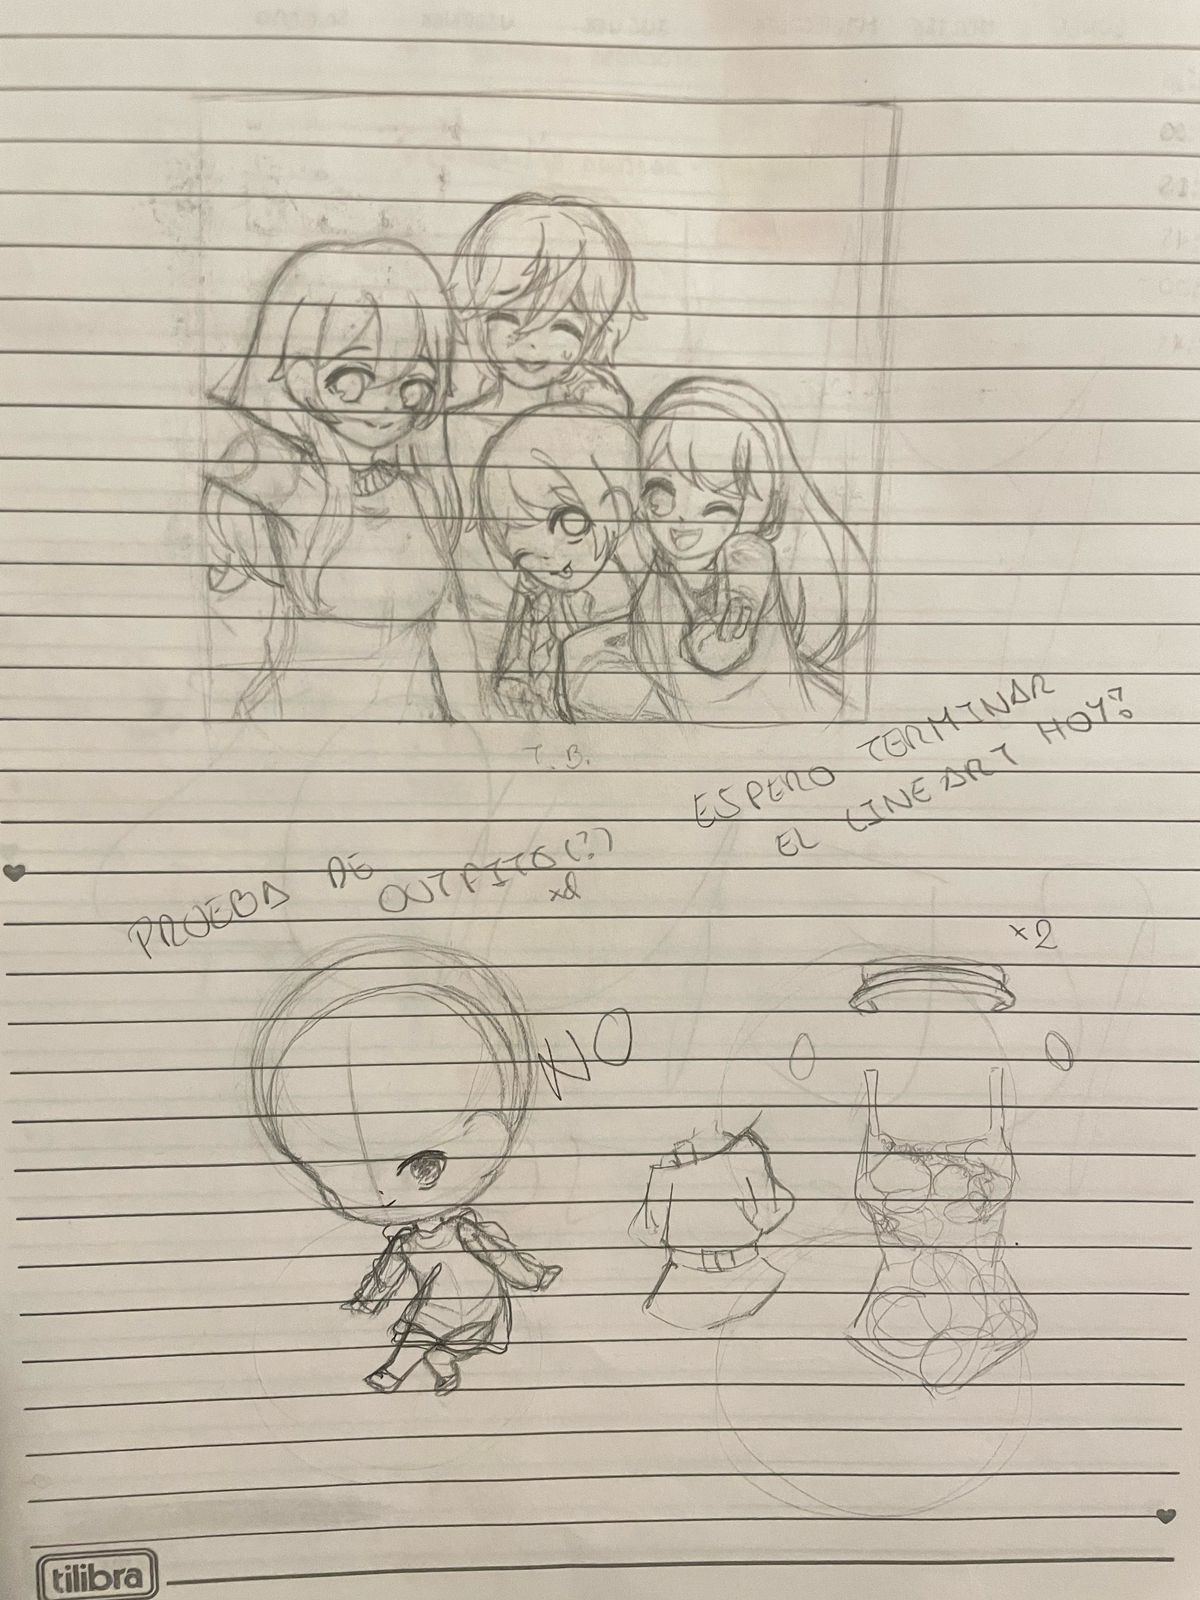 T.B.
ESPERO TERMINAR
EL LINEART HOY?
PRUEBA DE
OUTFITS(?)
xd
x2
NO
tilibra